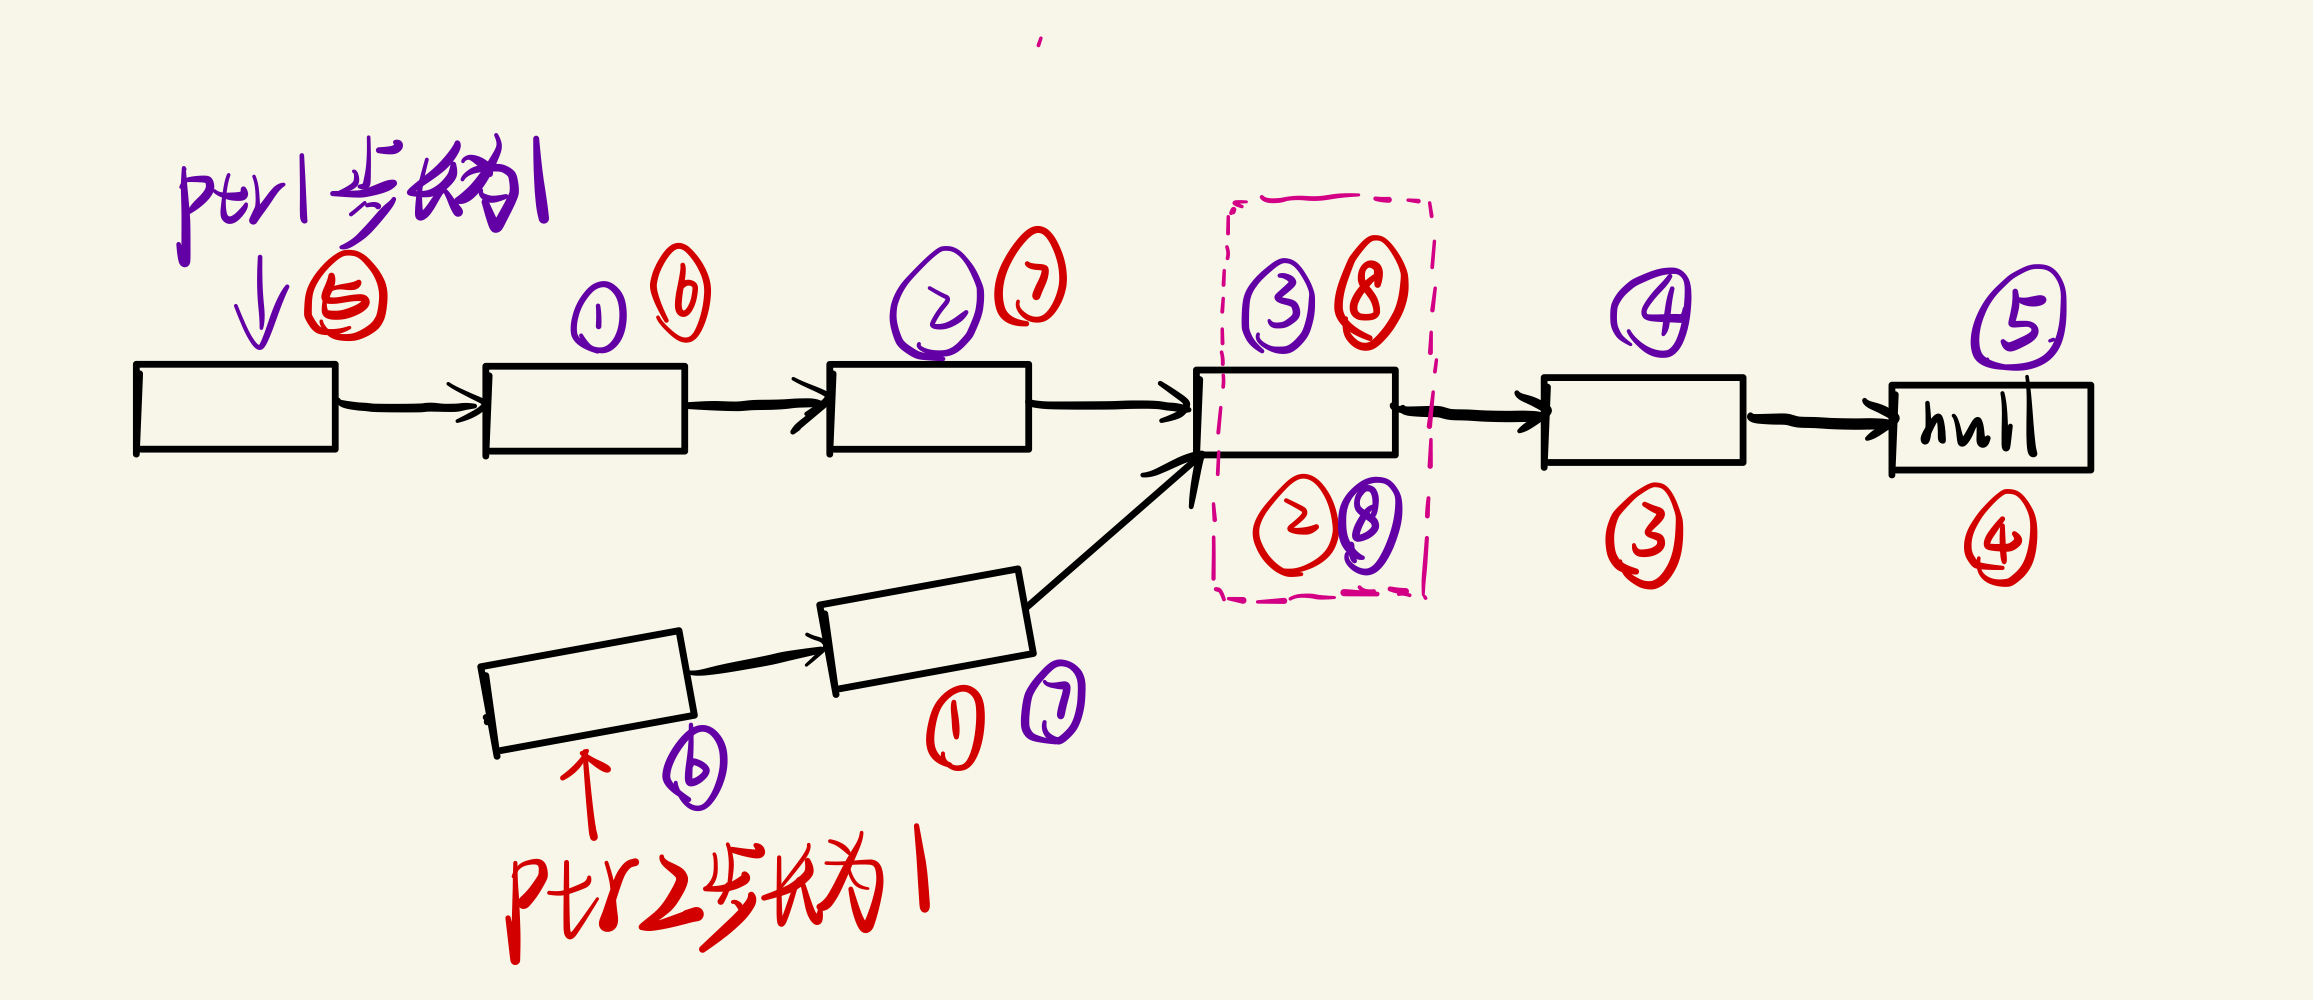 ptr1步长为1
⑤ ① ⑥ ② ⑦ ③ ⑧ ④ ⑤
null
② ⑧ ③ ④
⑥ ① ⑦
ptr2步长为1